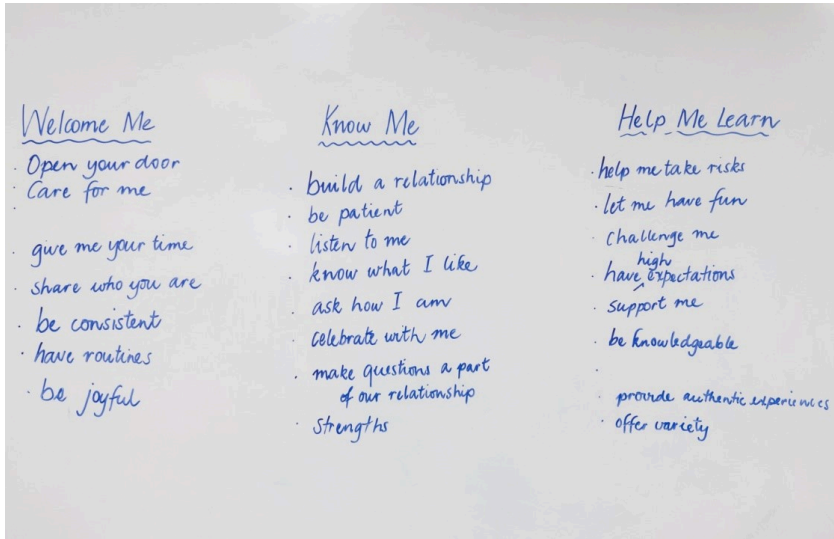 Welcome Me
· Open your door
· Care for me
·
· give me your time
· share who you are
· be consistent
· have routines
· be joyful
Know Me
· build a relationship
· be patient
· listen to me
· know what I like
· ask how I am
· celebrate with me
· make questions a part
of our relationship
· strengths
Help Me Learn
· help me take risks
· let me have fun
· challenge me
· have high expectations
· support me
· be knowledgeable
·
· provide authentic experiences
· offer variety